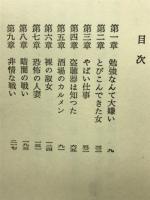 目次
第一章　勉強なんて大嫌い
第二章　とびこんできた女
第三章　やばい仕事
第四章　盗聴器は知つた
第五章　酒場のカルメン
第六章　裸の淑女
第七章　恐怖の人妻
第八章　暗闇の戦い
第九章　非情な戦い